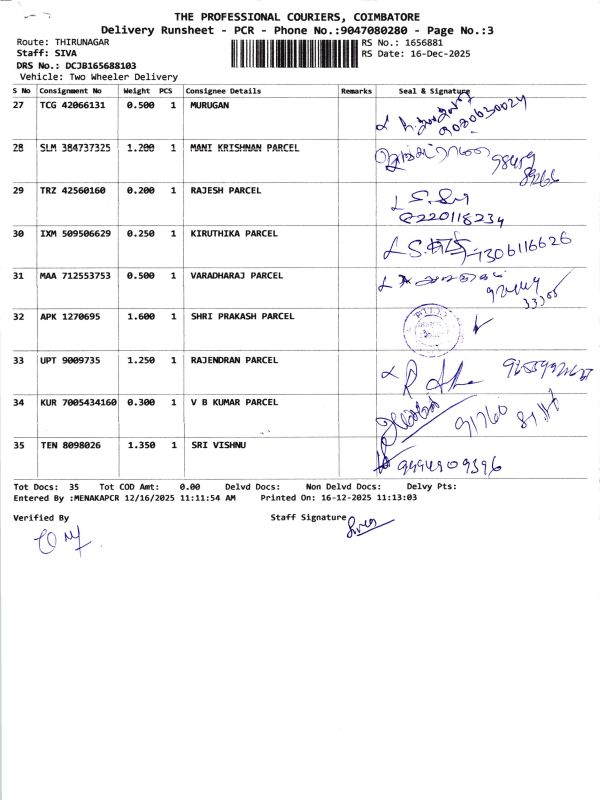 THE PROFESSIONAL COURIERS, COIMBATORE
Delivery Runsheet - PCR - Phone No.:9047080280 - Page No.:3
Route: THIRUNAGAR RS No.: 1656881
Staff: SIVA RS Date: 16-Dec-2025
DRS No.: DCJB165688103
Vehicle: Two Wheeler Delivery
S No Consignment No Weight PCS Consignee Details Remarks Seal & Signature
27 TCG 42066131 0.500 1 MURUGAN
9080630024
28 SLM 384737325 1.200 1 MANI KRISHNAN PARCEL
29 TRZ 42560160 0.200 1 RAJESH PARCEL
8220118234
30 IXM 509506629 0.250 1 KIRUTHIKA PARCEL
7306116626
31 MAA 712553753 0.500 1 VARADHARAJ PARCEL
32 APK 1270695 1.600 1 SHRI PRAKASH PARCEL
33 UPT 9009735 1.250 1 RAJENDRAN PARCEL
34 KUR 7005434160 0.300 1 V B KUMAR PARCEL
35 TEN 8098026 1.350 1 SRI VISHNU
9994909396
Tot Docs: 35 Tot COD Amt: 0.00 Delvd Docs: Non Delvd Docs: Delvy Pts:
Entered By :MENAKAPCR 12/16/2025 11:11:54 AM Printed On: 16-12-2025 11:13:03
Verified By Staff Signature